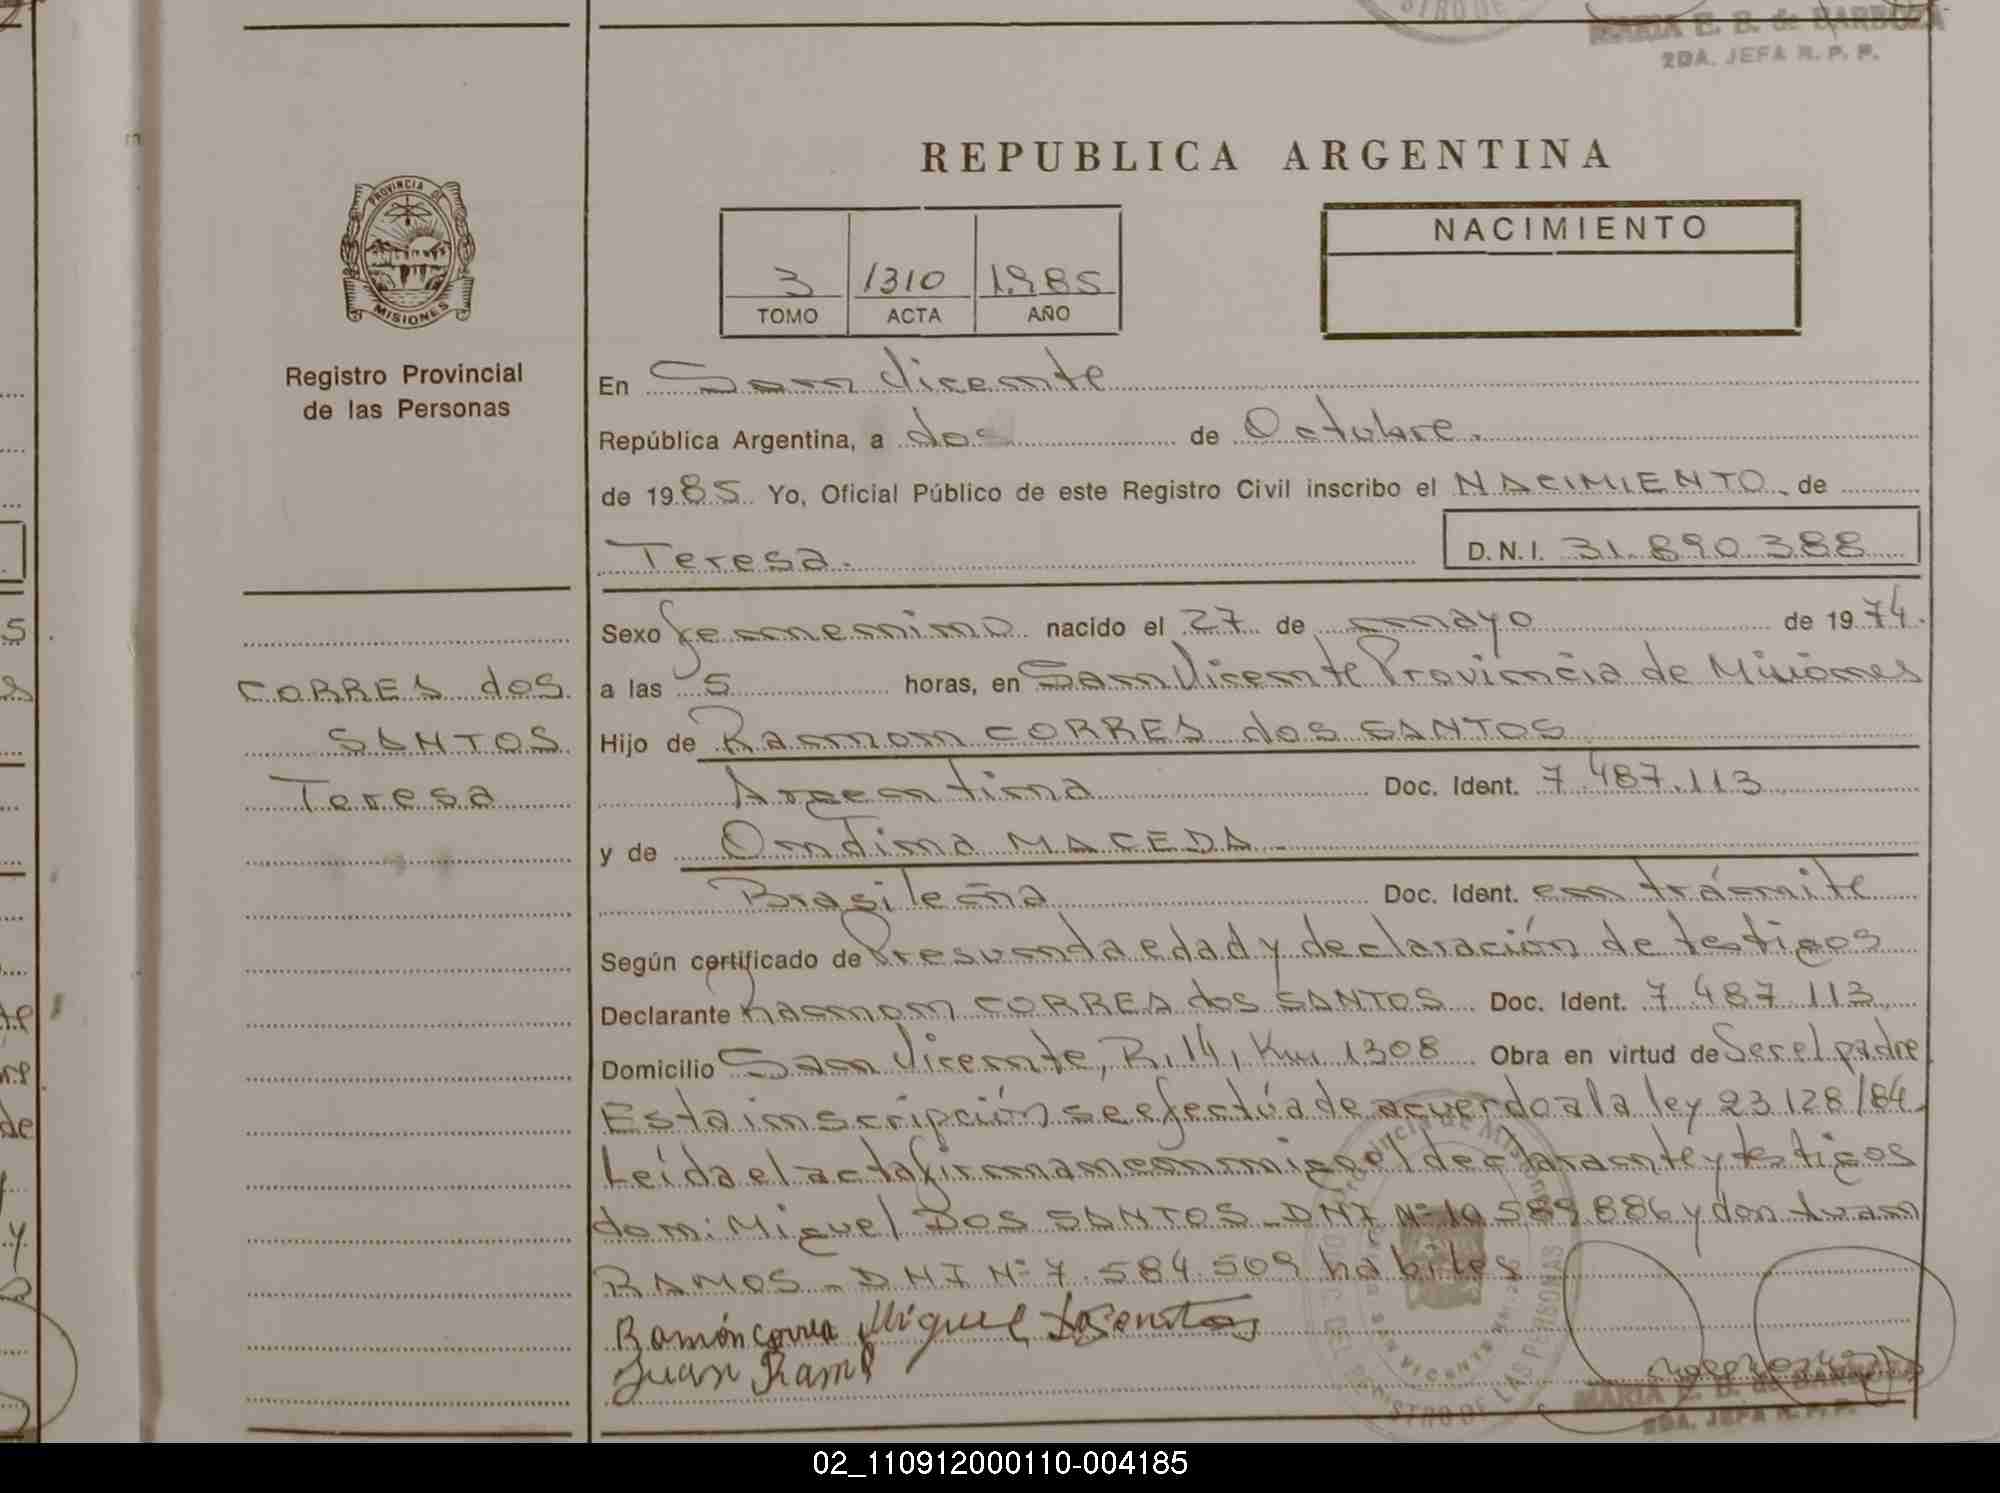 MARIA E. B. de BARBOZA
2DA. JEFA R. P. P.
PROVINCIA DE
MISIONES
Registro Provincial
de las Personas
CORREA dos
SANTOS
Teresa
REPUBLICA ARGENTINA
3 1310 1985
TOMO ACTA AÑO
NACIMIENTO
En San Vicente
República Argentina, a dos de Octubre.
de 1985 Yo, Oficial Público de este Registro Civil inscribo el NACIMIENTO de
Teresa. D.N.I. 31.890.388
Sexo femenino nacido el 27 de mayo de 1974.
a las 5 horas, en San Vicente Provincia de Misiones
Hijo de Ramon CORREA dos SANTOS
Argentina Doc. Ident. 7.487.113
y de Ondina MACEDA
Brasileña Doc. Ident. en trámite
Según certificado de Presunda edad y declaración de testigos
Declarante Ramon CORREA dos SANTOS Doc. Ident. 7 487 113
Domicilio San Vicente, R. 14, Km 1308 Obra en virtud de Ser el padre
Esta inscripción se efectúa de acuerdo a la ley 23.128/84.
Leída el acta firman conmigo el declarante y testigos
don: Miguel DOS SANTOS - DNI Nº 10 589.886 y don Juan
RAMOS - DNI Nº 7.584.509 habiles
Ramón correa Miguel
Juan Ramo
MARIA E. B. de BARBOZA
2DA. JEFA R. P. P.
02_110912000110-004185